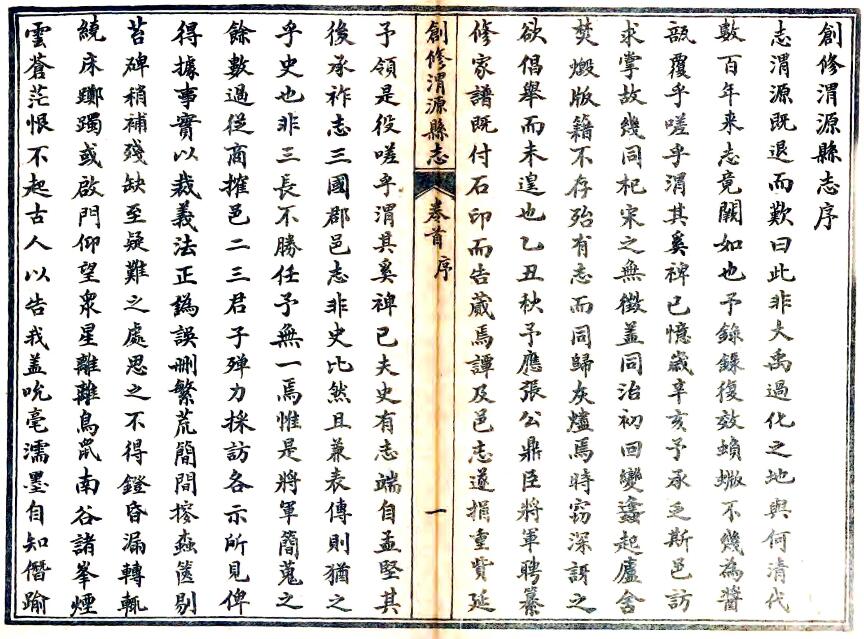 創修渭源縣志序
志渭源既退而歎曰此非大禹過化之地與何清代
數百年来志竟闕如也予錄錄復效蝜蝂不幾為醬
瓿覆乎嗟乎渭其奚裨已憶嵗辛亥予承乏斯邑訪
求掌故幾同杞宋之無徵盖同治初回變蠭起廬舍
焚燬版籍不存殆有志而同歸灰燼焉時竊深訝之
欲倡舉而未遑也乙丑秋予應張公鼎臣將軍聘纂
修家譜既付石印而告蕆焉譚及邑志遂捐重貲延
創修渭源縣志
卷首
序
一
予領是役嗟乎渭其奚裨已夫史有志端自孟堅其
後承祚志三國郡邑志非史比然且兼表傳則猶之
乎史也非三長不勝任予無一焉惟是將軍簡蒐之
餘數過從商搉邑二三君子殫力採訪各示所見俾
得據事實以裁義法正鵶誤刪繁荒簡間搩蟲篋剔
苔碑稍補殘缺至疑難之處思之不得鐙昏漏轉輒
繞床躑躅或啟門仰望衆星離離鳥鼠南谷諸峯煙
雲蒼茫恨不起古人以告我盖吮毫濡墨自知僭踰